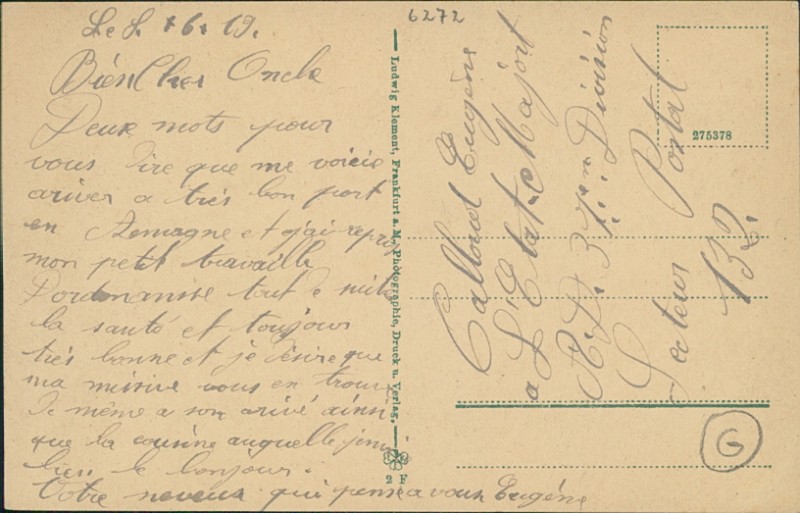 Le 8. +6. 19.
Bien Cher Oncle
Deux mots pour
vous dire que me voicie
ariver a trés bon port
en Alemagne et j'ai repris
mon petit travaille
D'ordonanise tout de suite
la santé et toujours
trés bonne et je désire que
ma missive vous en trouve
De même a son arivé ainsi
que la cousine auquelle
bien le bonjour.
Votre neveux qui pense a vous Eugène
Ludwig Klement, Frankfurt a. M., Photographie, Druck u. Verlag.
2 F
6272
275378
Calloud Eugène
a L'Etat-Major
D. 37em Division
Secteur Postal
132.
G